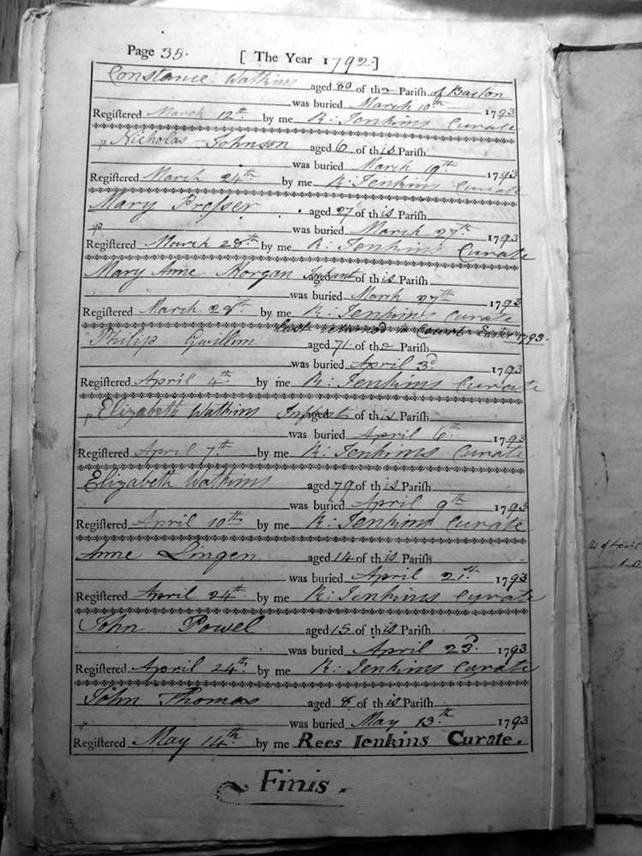 Page 35. [ The Year 1792.]
Constance Watkins aged 80 of the Parish of Bacton
was buried March 10th 1793
Registered March 12th by me R: Jenkins Curate
Nicholas Johnson aged 6 of this Parish
was buried March 9th 1793
Registered March 24th by me R: Jenkins Curate
Mary Prosser aged 27 of this Parish
was buried March 27th 1793
Registered March 28th by me R: Jenkins Curate
Mary Anne Morgan Infant of this Parish
was buried March 27th 1793
Registered March 29th by me R: Jenkins Curate
last returned to Court Easter 1793.
Philip Gwillim aged 71 of the Parish
was buried April 3d 1793
Registered April 4th by me R: Jenkins Curate
Elizabeth Watkins Infant of this Parish
was buried April 6th 1793
Registered April 7th by me R: Jenkins Curate
Elizabeth Watkins aged 79 of this Parish
was buried April 9th 1793
Registered April 10th by me R: Jenkins Curate
Anne Lingen aged 14 of this Parish
was buried April 21st 1793
Registered April 24th by me R: Jenkins Curate
John Powel aged 15 of this Parish
was buried April 23d 1793
Registered April 24th by me R: Jenkins Curate
John Thomas aged 8 of this Parish
was buried May 13th 1793
Registered May 14th by me Rees Jenkins Curate.
Finis.